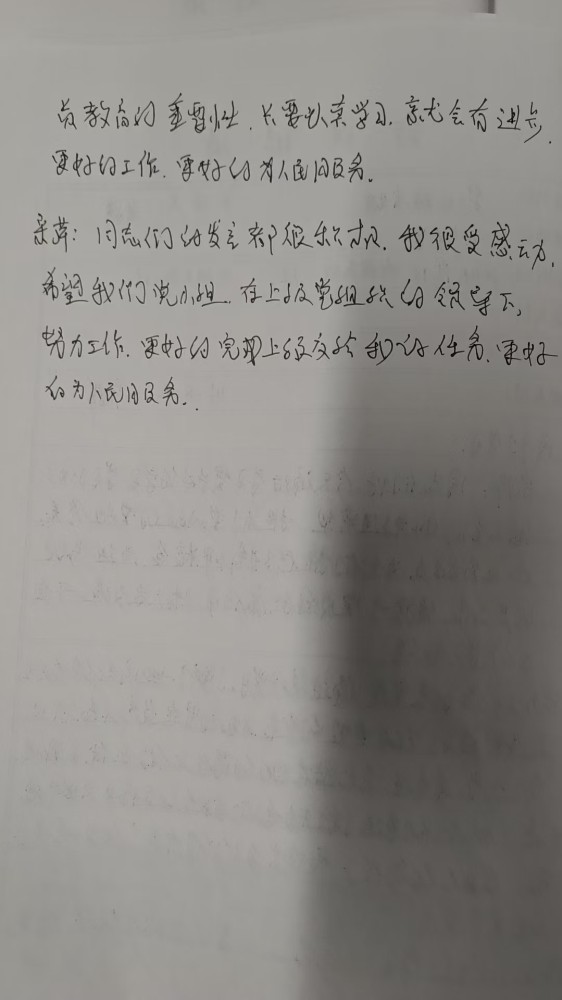 员教育的重要性.只要认真学习.就会有进步.
更好的工作.更好的为人民服务.
同志们的发言都很积极.我很受感动.
希望我们党小组.在上级党组织的领导下,
努力工作.更好的完成上级交给我们的任务.更好
的为人民服务.